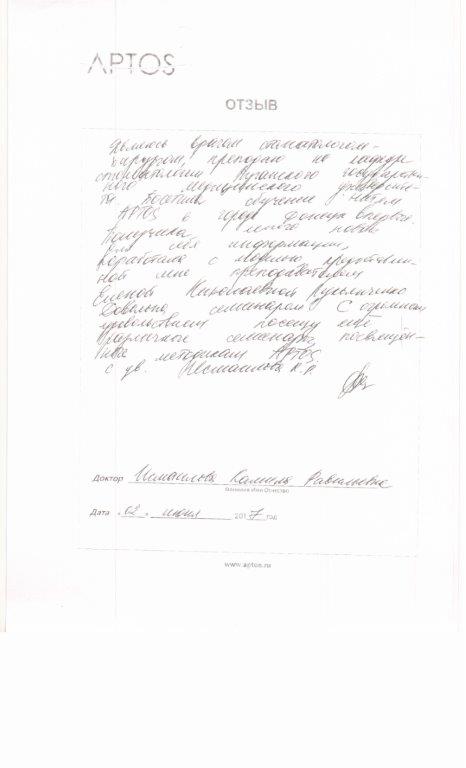 APTOS
ОТЗЫВ
Являюсь врачом стоматологом-
хирургом, преподаю на кафедре
стоматологии Луганского государствен-
ного медицинского университе-
та. Посетила обучение нитям
APTOS в городе Донецк впервые.
Получила много новой
для себя информации,
поработала с моделью предоставлен-
ной мне преподавателем
Еленой Николаевной
Довольна семинаром. С огромным
удовольствием посещу ещё
различные семинары, посвящён-
ные методикам APTOS.
с ув. Исмаилова К.Р.
Доктор Исмаилова Камила Равильевна
Фамилия Имя Отчество
Дата «02» июня 2017 год
www.aptos.ru